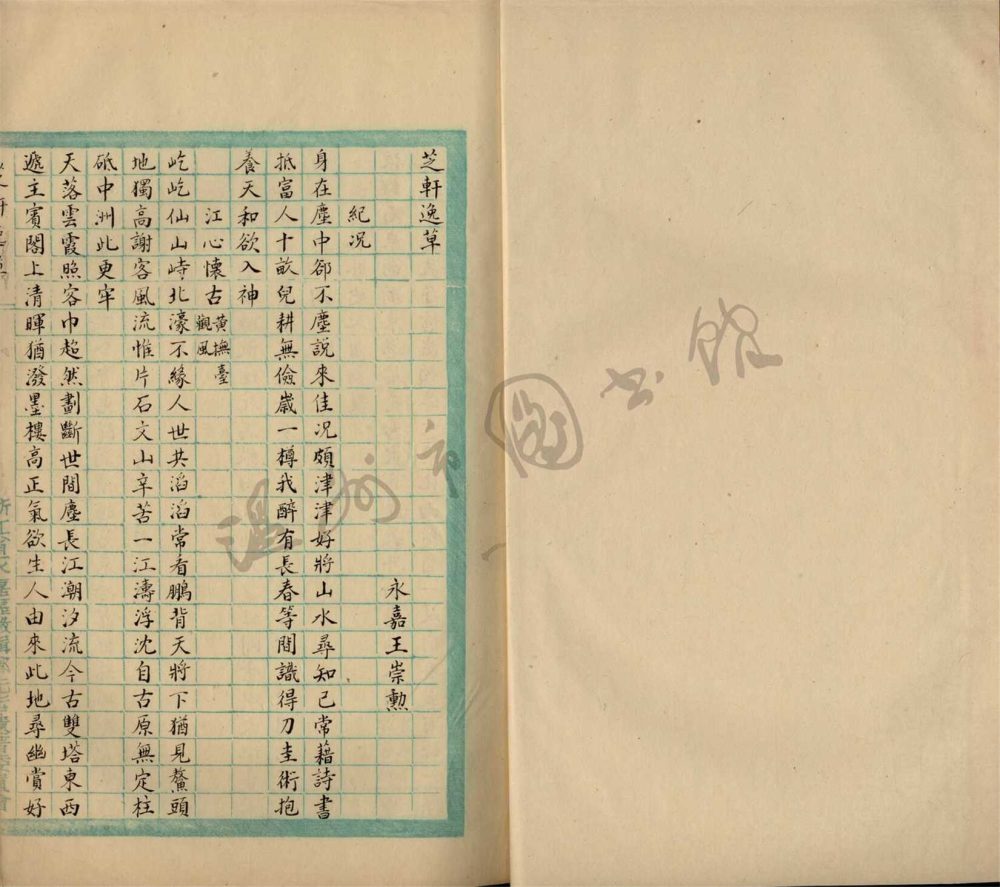 芝軒逸草
永嘉王崇勲
紀况
身在塵中卻不塵說來佳况頗津津好將山水尋知己常藉詩書
抵富人十畝兒耕無儉歲一樽我醉有長春等閒識得刀圭術抱
養天和欲入神
江心懷古黃撫臺觀風
屹屹仙山峙北濠不緣人世共滔滔常看鵬背天將下猶見鰲頭
地獨高謝客風流惟片石文山辛苦一江濤浮沈自古原無定柱
砥中洲此更牢
天落雲霞照客巾超然劃斷世間塵長江潮汐流今古雙塔東西
遞主賓閣上清暉猶潑墨樓高正氣欲生人由來此地尋幽賞好
溫州市圖書館